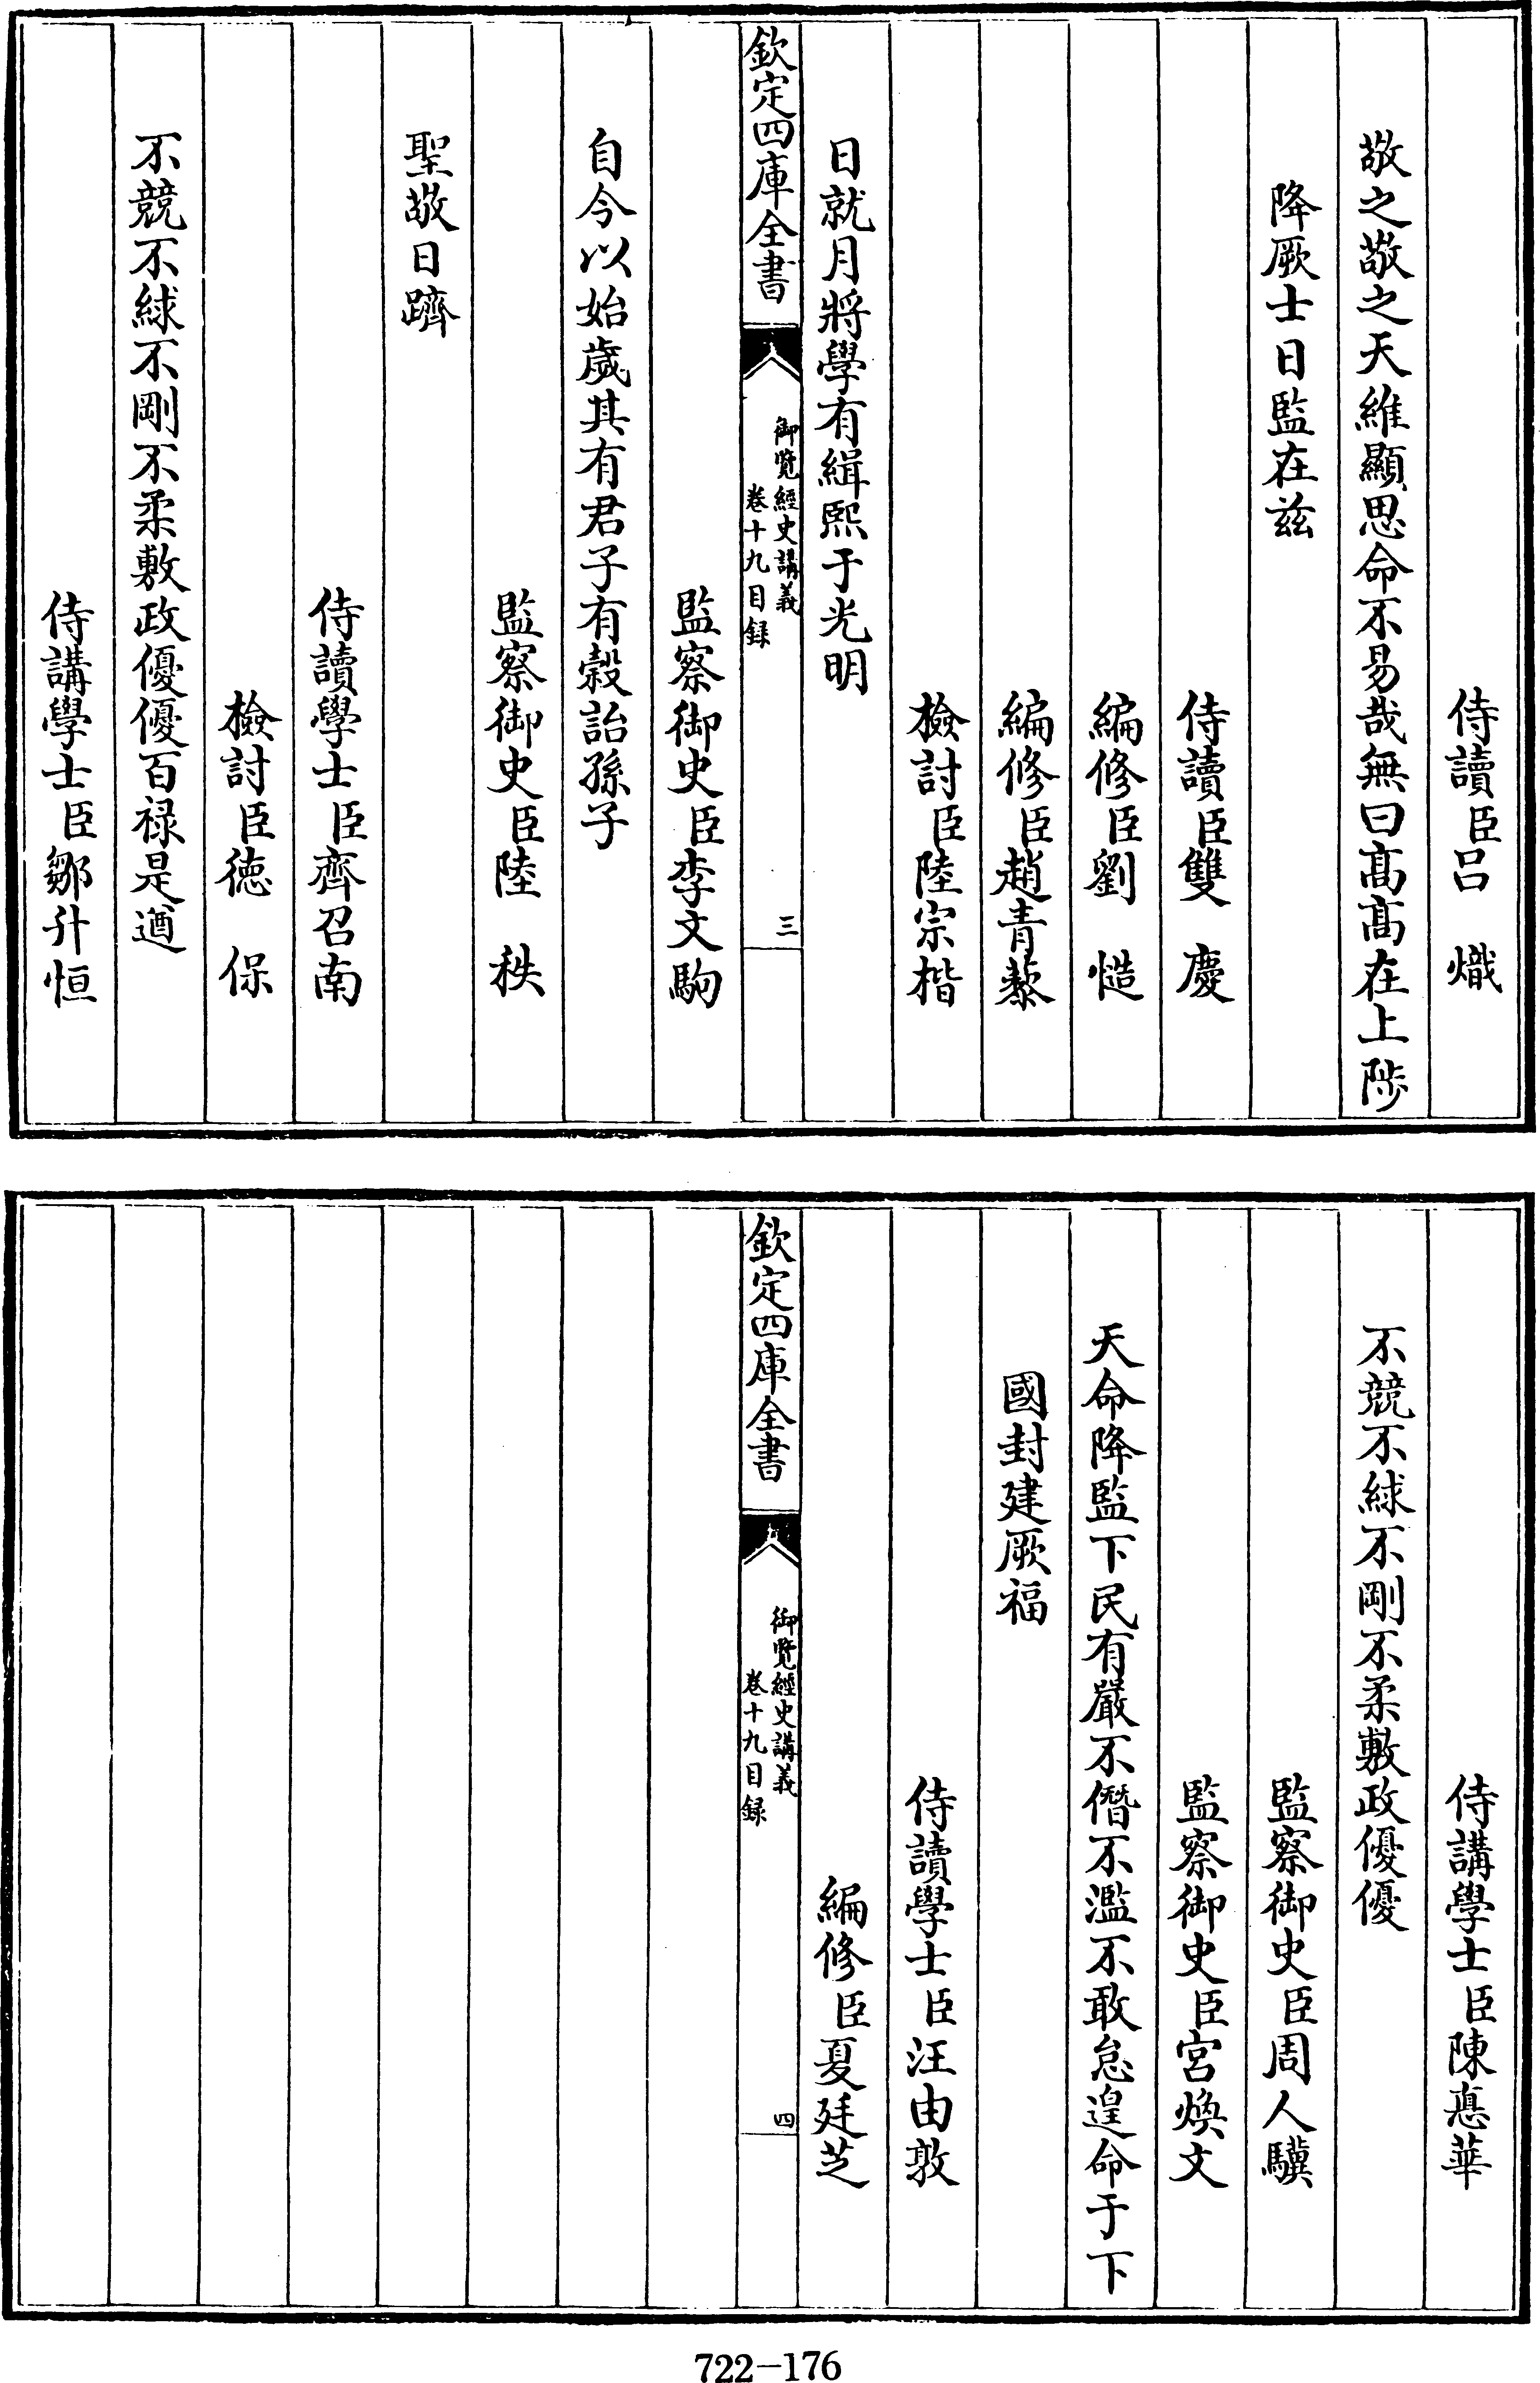 侍讀臣呂　熾
敬之敬之天維顯思命不易哉無曰髙髙在上陟
降厥士日監在兹
侍讀臣雙　慶
編修臣劉　慥
編修臣趙青藜
檢討臣陸宗楷
日就月將學有緝熙于光明
欽定四庫全書
御覽經史講義
卷十九目録
三
監察御史臣李文駒
自今以始歲其有君子有榖詒孫子
監察御史臣陸　秩
聖敬日躋
侍讀學士臣齊召南
檢討臣徳　保
不競不絿不剛不柔敷政優優百禄是遒
侍講學士臣鄒升恒
侍講學士臣陳悳華
不競不絿不剛不柔敷政優優
監察御史臣周人驥
監察御史臣宮煥文
天命降監下民有嚴不僭不濫不敢怠遑命于下
國封建厥福
侍讀學士臣汪由敦
編修臣夏廷芝
欽定四庫全書
御覽經史講義
卷十九目録
四
722-176